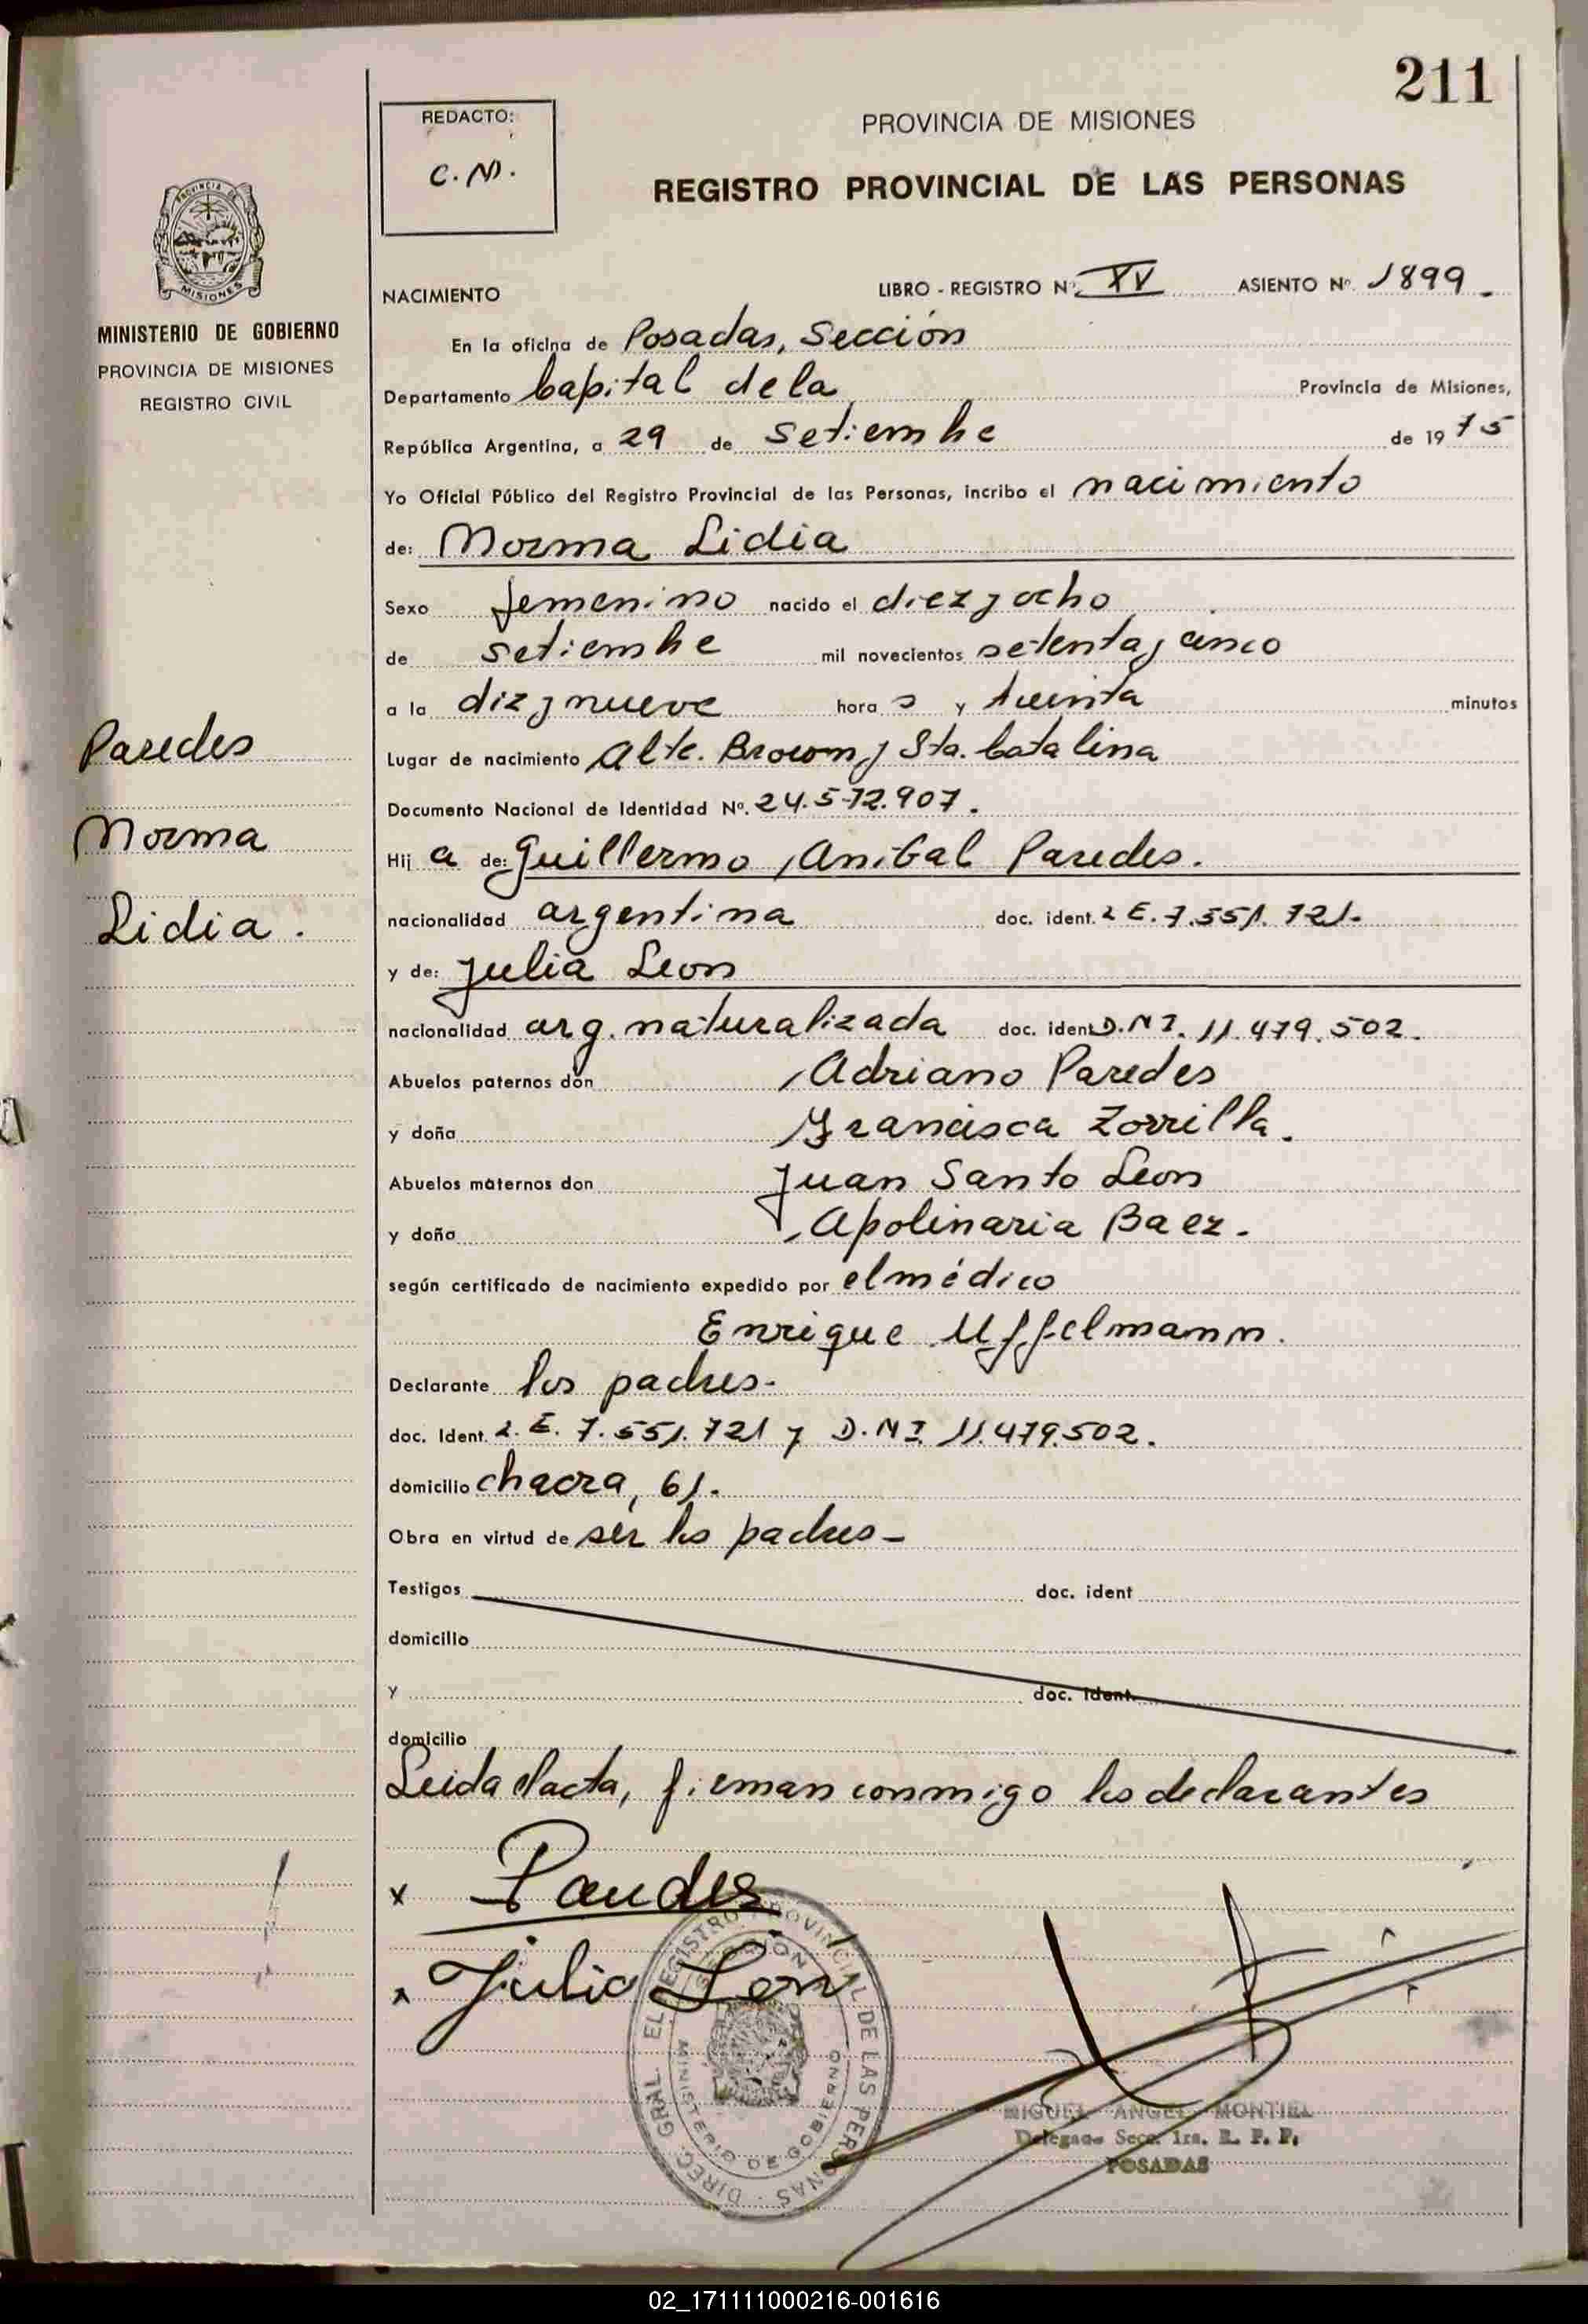 211
REDACTO:
C. N.
PROVINCIA DE MISIONES
REGISTRO PROVINCIAL DE LAS PERSONAS
PROVINCIA DE
MISIONES
MINISTERIO DE GOBIERNO
PROVINCIA DE MISIONES
REGISTRO CIVIL
NACIMIENTO LIBRO - REGISTRO Nº. XV ASIENTO Nº. 1899.
En la oficina de Posadas, Sección
Departamento Capital de la Provincia de Misiones,
República Argentina, a 29 de Setiembre de 1975
Yo Oficial Público del Registro Provincial de las Personas, incribo el nacimiento
de: Norma Lidia
Sexo femenino nacido el diez y ocho
de setiembre mil novecientos setenta y cinco
a la diz y nueve hora s y treinta minutos
Paredes
Norma
Lidia.
Lugar de nacimiento Alte. Brown y Sta. Catalina
Documento Nacional de Identidad Nº. 24.572.907.
Hij a de: Guillermo Anibal Paredes.
nacionalidad argentina doc. ident. L E. 7.551.721.
y de: Julia Leon
nacionalidad arg. naturalizada doc. ident D.N I. 11.479.502.
Abuelos paternos don Adriano Paredes
y doña Francisca Zorrilla.
Abuelos maternos don Juan Santo Leon
y doña Apolinaria Baez.
según certificado de nacimiento expedido por el médico
Enrique Uffelmann.
Declarante los padres.
doc. Ident. L. E. 7.551.721 y D.N I. 11.479.502.
domicilio chacra, 61.
Obra en virtud de ser los padres-
Testigos doc. ident
domicilio
y doc. ident.
domicilio
Leida el acta, firman conmigo los declarantes
x Paredes
x Julia Leon
DIREC. GRAL. EL REGISTRO PROVINCIAL DE LAS PERSONAS
MINISTERIO DE GOBIERNO
MIGUEL ANGEL MONTIEL
Delegado Secc. 1ra. R. P. P.
POSADAS
02_171111000216-001616